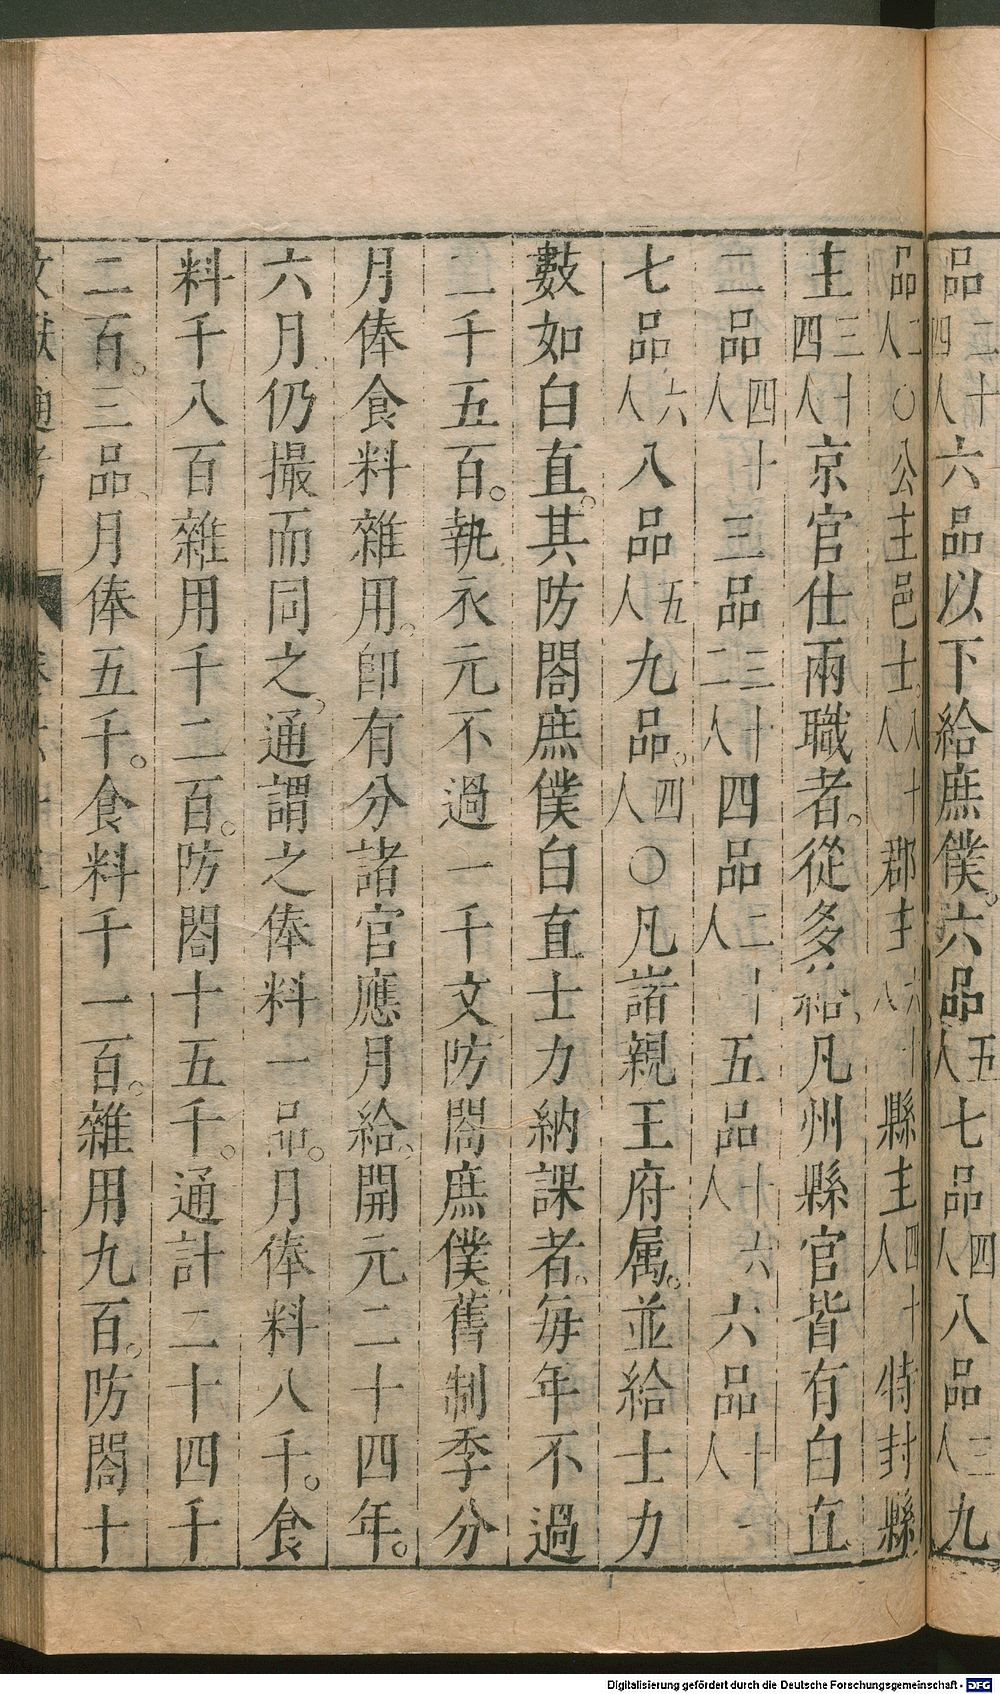 品二十四人六品以下給庶僕。六品五人七品四人八品三人九
品二人○公主邑士八十人郡主六十人縣主四十人特封縣
主三十四人京官仕兩職者。從多給、凡州縣官皆有白直
二品四十人三品三十二人四品二十人五品十六人六品十人
七品六人八品五人九品。四人○凡諸親王府属。並給士力
數如白直。其防閤庶僕白直士力納課者。每年不過
二千五百。執衣元不過一千文防閤庶僕舊制季分
月俸食料雜用。卽有分諸官應月給。開元二十四年。
六月仍撮而同之、通謂之俸料一品。月俸料八千。食
料千八百雜用千二百。防閤十五千。通計二十四千
二百。三品、月俸五千。食料千一百。雜用九百。防閤十
文獻通考
Digitalisierung gefördert durch die Deutsche Forschungsgemeinschaft - DFG